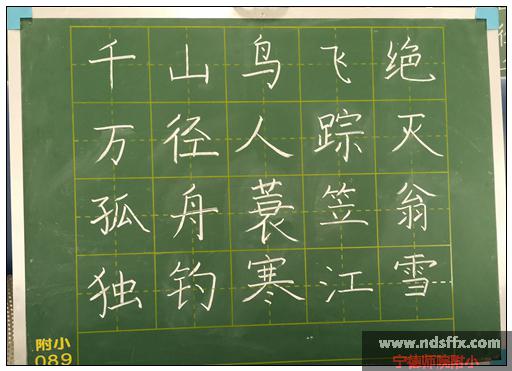 千山鸟飞绝
万径人踪灭
孤舟蓑笠翁
独钓寒江雪
附小
089
www.ndsffx.com
宁德师院附小